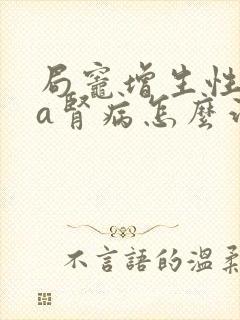 局竈增生性
a腎病怎麼
不言語的溫柔